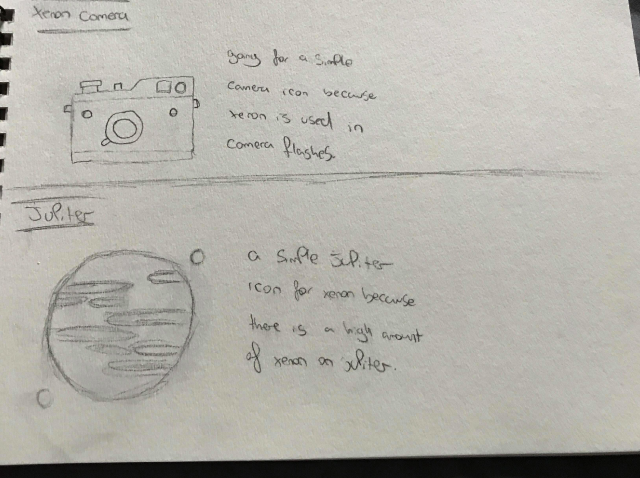 Xenon Camera
going for a simple
camera icon because
xenon is used in
camera flashes.
Jupiter
a simple Jupiter
icon for xenon because
there is a high amount
of xenon on jupiter.